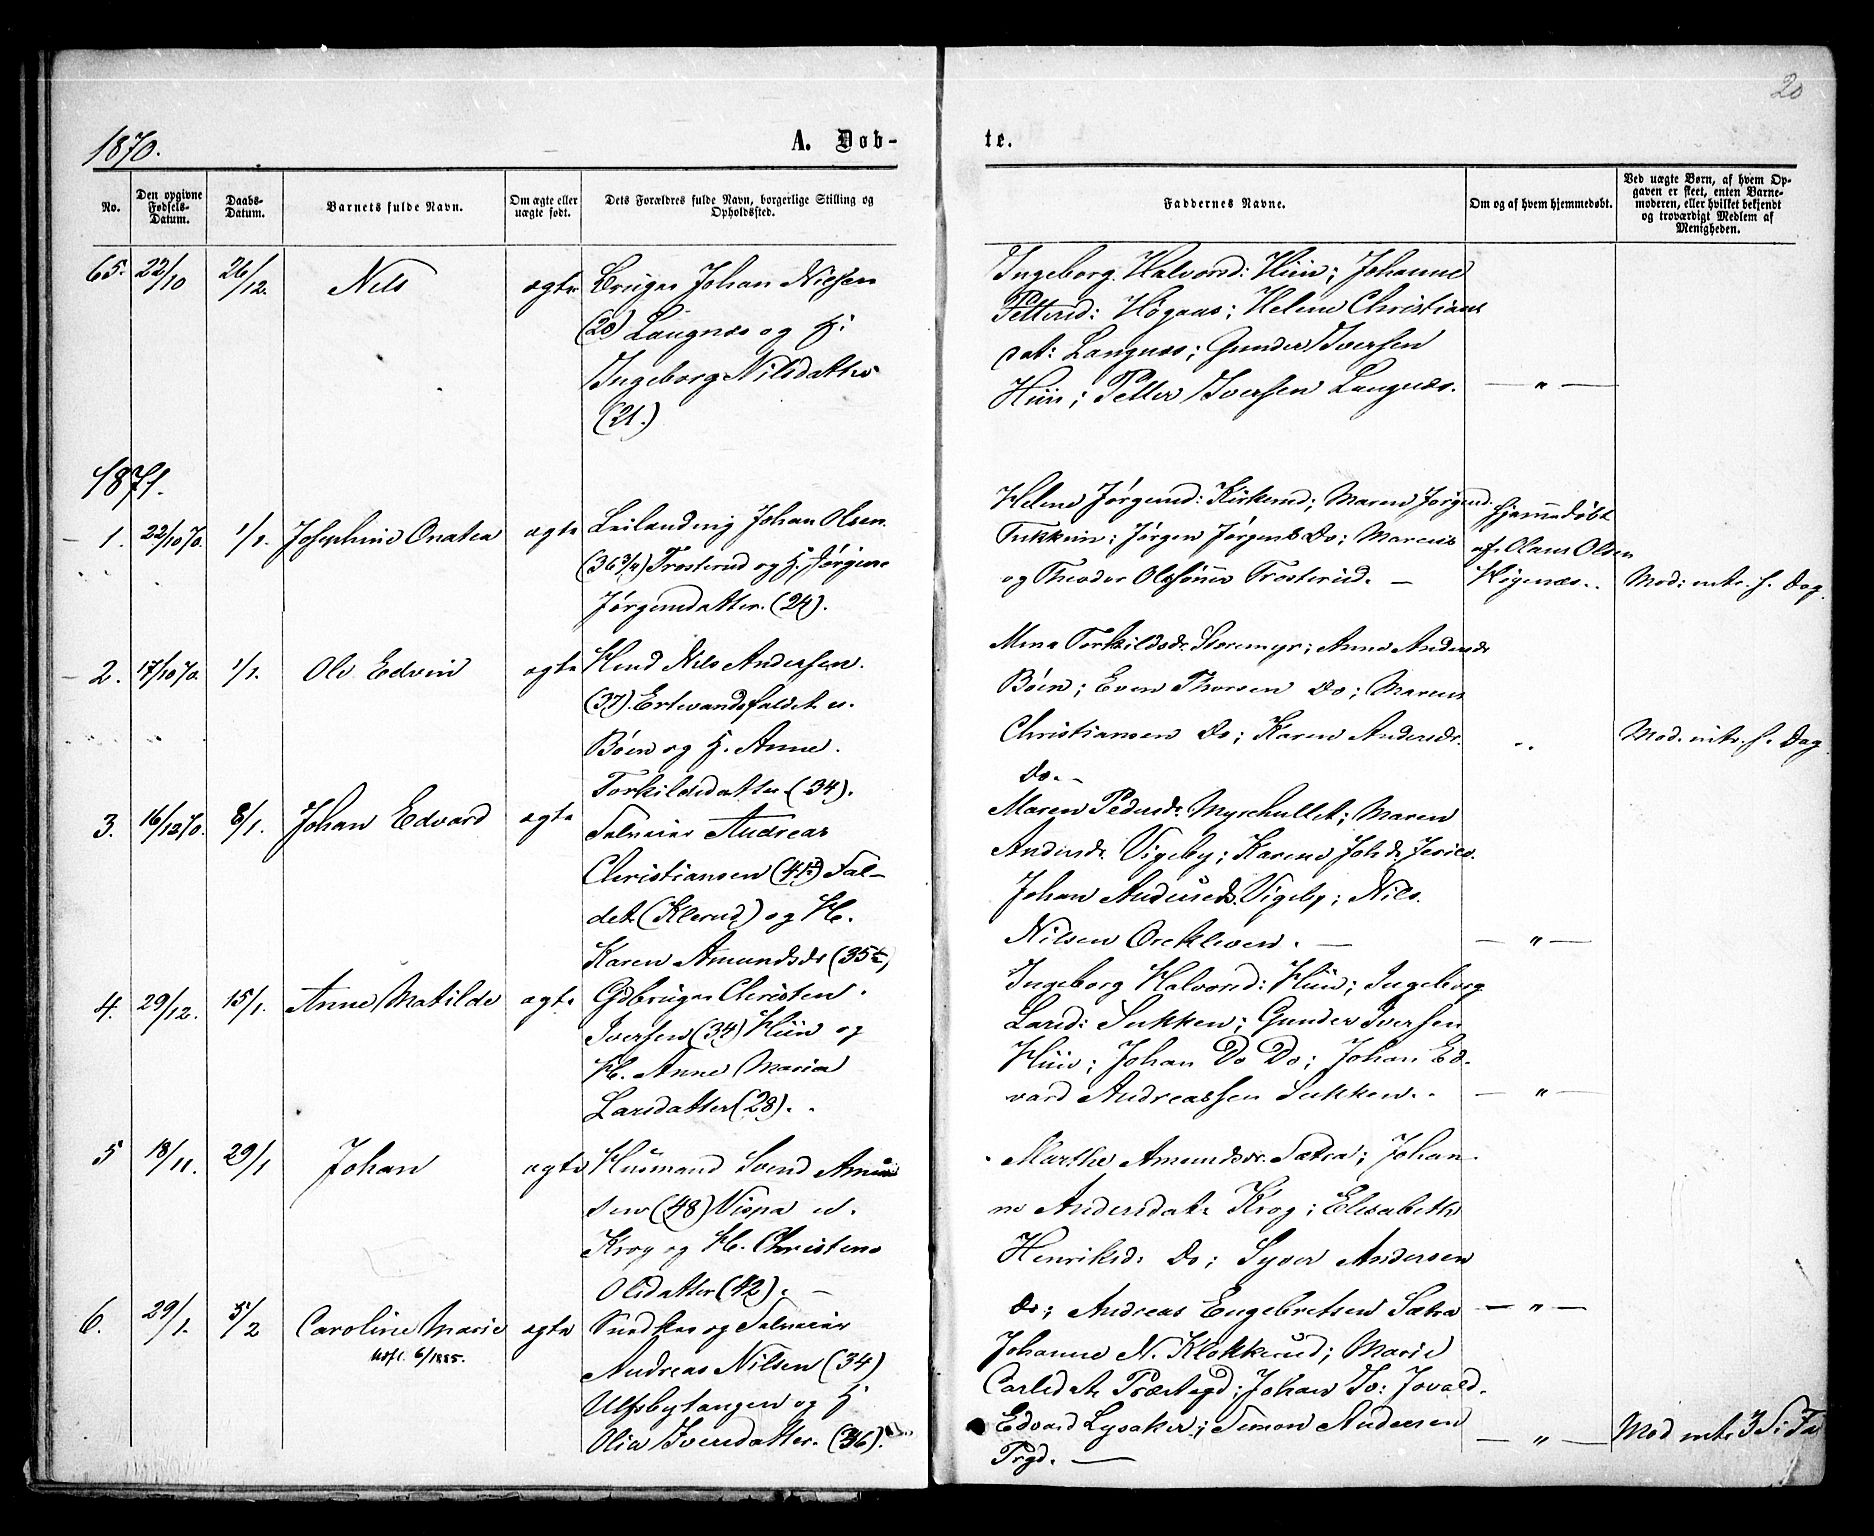 20
1870.
A. Døb-
te.
No.
Den opgivne Fødsels-Datum.
Daabs-Datum.
Barnets fulde Navn.
Om ægte eller uægte født.
Dets Forældres fulde Navn, borgerlige Stilling og Opholdssted.
Faddernes Navne.
Om og af hvem hjemmedøbt.
Ved uægte Børn, af hvem Opgaven er skeet, enten Barnemoderen, eller hvilket bekjendt og troværdigt Medlem af Menigheden.
65. 22/10 26/12. Nils ægte Bruger Johan Nielsen
(20) Langnæs og H.
Ingeborg Nilsdatter
(21.)
Ingeborg Halvorsd: Hiin; Johanne
Pettersd: Høgaas; Helene Christians
dat: Langnæs; Gunder Iversen
Hiin; Petter Iversen Langnæs. — " —
1871.
1. 22/10 70. 1/1. Josephine Onatea ægte Leilænding Johan Olsen
(36 3/4) Trosterud og H. Jørgine
Jørgensdatter. (24).
Helene Jørgensd: Kirkerud; Maren Jørgensd:
Tukkun; Jørgen Jørgens Do; Marcus
og Theodor Olssønner Trosterud. —
Hjemmedøbt
af Olaus Olsen
Høgenæs..
Mod: intr. s. Dag.
2. 17/10 70. 1/1. Ole Edvin ægte Hmd Nils Andersen.
(37). Ertevandsfaldet u.
Böen og H. Anne
Torkildsdatter. (34).
Mina Torkildsdr. Storemyr; Anne Andersdr
Böen; Even Thorsen Do; Marcus
Christiansen Do; Karen Andersdr.
Do. -
Mod. intr. s. Dag
3. 16/12 70. 8/1. Johan Edvard ægte Selveier Andreas
Christiansen (41) Fal-
det (Klerud) og H.
Karen Amundsdr (35)
Maren Pedersdr. Myrehullet; Maren
Andersdr. Vigeby; Karen Johsdr.
Johan Vigeby; Nils
Nilsen Orekleven. — — " —
4. 29/12. 15/1. Anne Matilde ægte Gdbruger Christen
Iversen (34) Hiin og
H. Anne Maria
Larsdatter (28). .
Ingeborg Halvorsd: Hiin; Ingeborg
Larsd: Sukken; Gunder Iversen
Hiin; Johan Do Do; Johan Ed-
vard Andreassen Sukken. . — " —
5 18/11. 29/1 Johan ægte Husmand Svend Amund
sen (48) Vispa u.
Krog og H. Christine
Olsdatter (42). —
Marthe Amundsdr. Sætra; Johan-
ne Andersdat. Krog; Elisabeth
Henriksd: Do; Syver Andersen
Do; Andreas Engebretsen Sætra — " —
6. 29/1. 5/2 Caroline Marie ægte Snedker og Selveier
Udfl. 6/1885.
Andreas Nilsen (34)
Ulfsbytangen og H
Olia Iversdatter. (36).
Johanne N. Klokkerud; Marie
Carlsdt. Præstegd; Johan
Edvard Lysaker; Simon Andersen
Prgd. — — " —
Mod intr. 3 S.